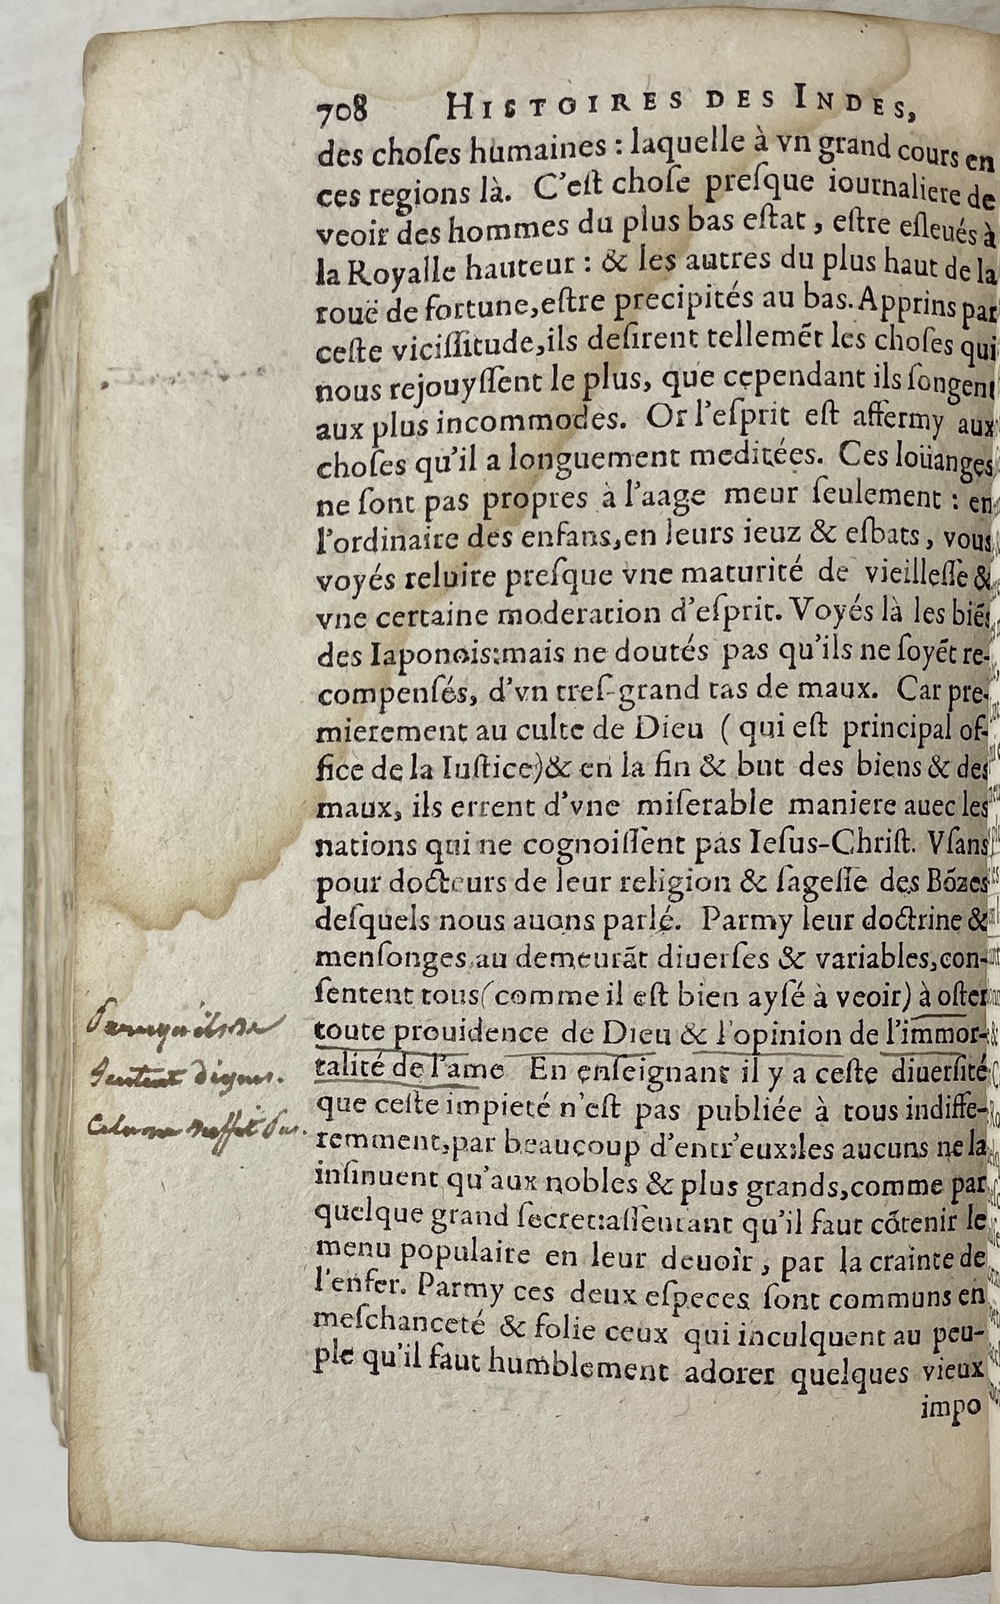 708 HISTOIRES DES INDES,
des choſes humaines : laquelle à vn grand cours en
ces regions là. C'eſt choſe preſque iournaliere de
veoir des hommes du plus bas eſtat, eſtre eſleués à
la Royalle hauteur : & les autres du plus haut de la
rouë de fortune, eſtre precipités au bas. Apprins par
ceſte viciſſitude, ils deſirent tellemẽt les choſes qui
nous rejouyſſent le plus, que cependant ils ſongent
aux plus incommodes. Or l'eſprit eſt affermy aux
choſes qu'il a longuement meditées. Ces loüanges
ne ſont pas propres à l'aage meur ſeulement : en
l'ordinaire des enfans, en leurs ieuz & eſbats, vous
voyés reluire preſque vne maturité de vieilleſſe &
vne certaine moderation d'eſprit. Voyés là les biẽs
des Iaponois: mais ne doutés pas qu'ils ne ſoyẽt re-
compenſés, d'vn treſ-grand tas de maux. Car pre-
mierement au culte de Dieu ( qui eſt principal of-
fice de la Iuſtice) & en la fin & but des biens & des
maux, ils errent d'vne miſerable maniere auec les
nations qui ne cognoiſſent pas Ieſus-Chriſt. Vſans
pour docteurs de leur religion & ſageſſe des Bõzes
deſquels nous auons parlé. Parmy leur doctrine &
menſonges au demeurãt diuerſes & variables, con-
ſentent tous (comme il eſt bien ayſé à veoir) à oſter
toute prouidence de Dieu & l'opinion de l'immor-
talité de l'ame En enſeignant il y a ceſte diuerſité
que ceſte impieté n'eſt pas publiée à tous indiffe-
remment, par beaucoup d'entr'eux: les aucuns ne la
inſinuent qu'aux nobles & plus grands, comme par
quelque grand ſecret: aſſeurant qu'il faut cõtenir le
menu populaire en leur deuoir, par la crainte de
l'enfer. Parmy ces deux eſpeces ſont communs en
meſchanceté & folie ceux qui inculquent au peu-
ple qu'il faut humblement adorer quelques vieux
impo